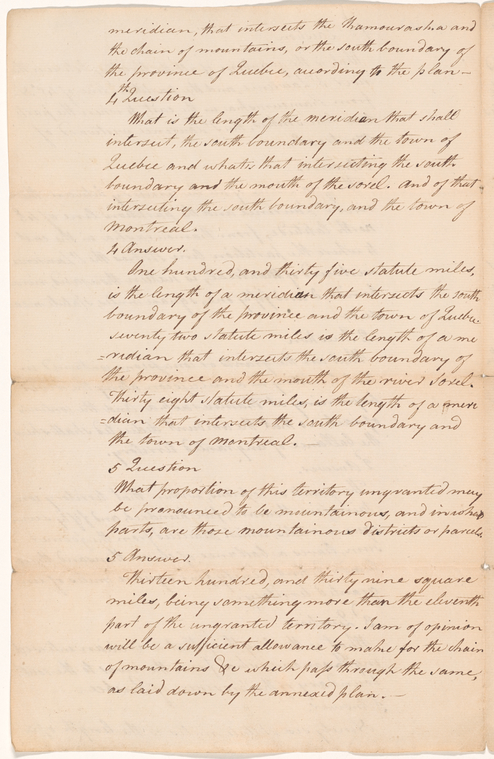 meridian, that intersects the Kamourasha and
the chain of mountains, or the south boundary of
the province of Quebec, acording to the plan —
4th Question
What is the length of the meridian that shall
intersect, the south boundary and the town of
Quebec and whats that intersecting the south
boundary and the mouth of the sorel. and of that
intersecting the south boundary, and the town of
Montreal.
4 Answer.
One hundred, and thirty five statute miles,
is the length of a meridian that intersects the south
boundary of the province and the town of Quebec
seventy two statute miles is the length of a me
=ridian that intersects the south boundary of
the province and the mouth of the river sorel.
Thirty eight statute miles, is the length of a meri
=dian that intersects the south boundary and
the town of Montreal. —
5 Question
What proportion of this territory ungranted may
be pronounced to be mountainous, and in what
parts, are those mountainous districts or parcels
5 Answer.
Thirteen hundred, and thirty nine square
miles, being something more than the eleventh
part of the ungranted territory. I am of opinion
will be a sufficient allowance to make for the chain
of mountains &c which pass through the same,
as laid down by the annexed plan. —